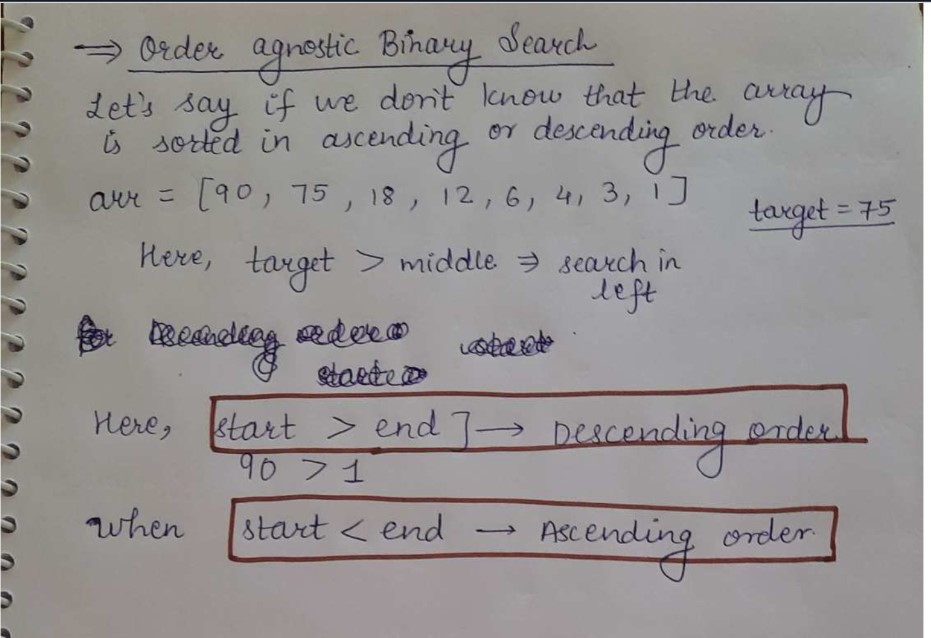 ⇒ Order agnostic Binary Search
Let's say if we don't know that the array
is sorted in ascending or descending order.
arr = [90, 75, 18, 12, 6, 4, 3, 1]
target = 75
Here, target > middle ⇒ search in
left
Here, start > end ] → Descending order
90 > 1
When start < end → Ascending order.